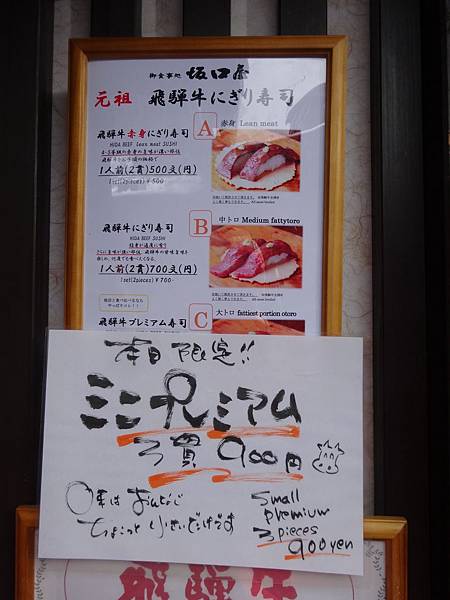 御食事処 坂口屋
元祖 飛騨牛にぎり寿司
A 赤身 Lean meat
飛騨牛赤身にぎり寿司
HIDA BEEF Lean meat SUSHI
1人前(2貫)500文(円)
1set(2pieces)￥500
B 中トロ Medium fattytoro
飛騨牛にぎり寿司
HIDA BEEF SUSHI
1人前(2貫)700文(円)
1set(2pieces)￥700
飛騨牛プレミアム寿司
C 大トロ fattiest portion otoro
本日限定!!
ミニプレミアム
3貫 900円
肉質はおんなじ
ちょこっと小さいだけです
small
premium
3 pieces
900yen
飛騨牛